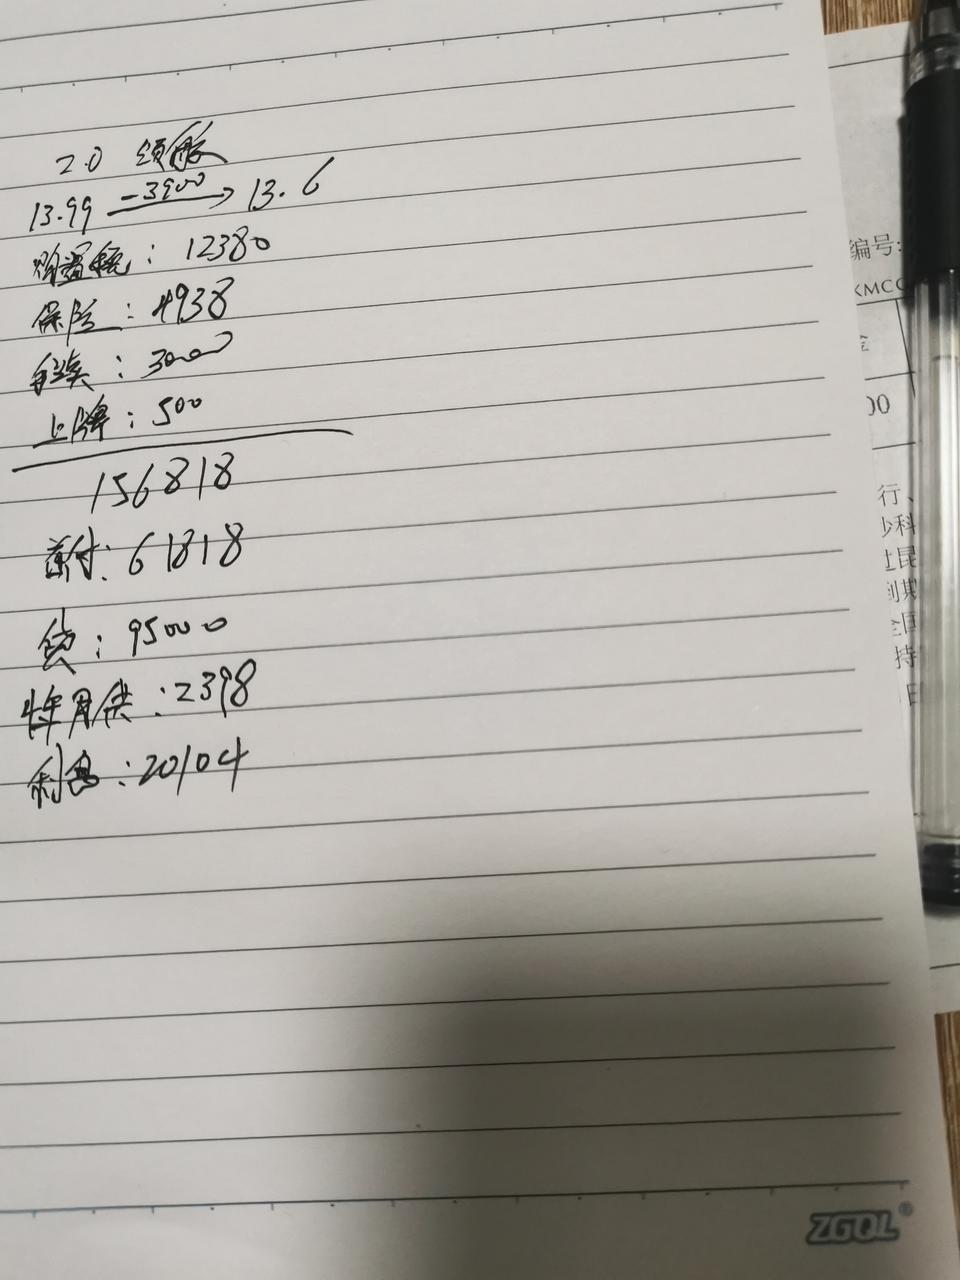 2.0 领航
13.99 -3900→ 13.6
购置税：12380
保险：4938
手续：3000
上牌：500
156818
首付：61818
贷：95000
4年月供：2398
利息：20104
ZGQL®
编号:
KMCC
金
00
行、
少科
过昆
到期
全国
持
日